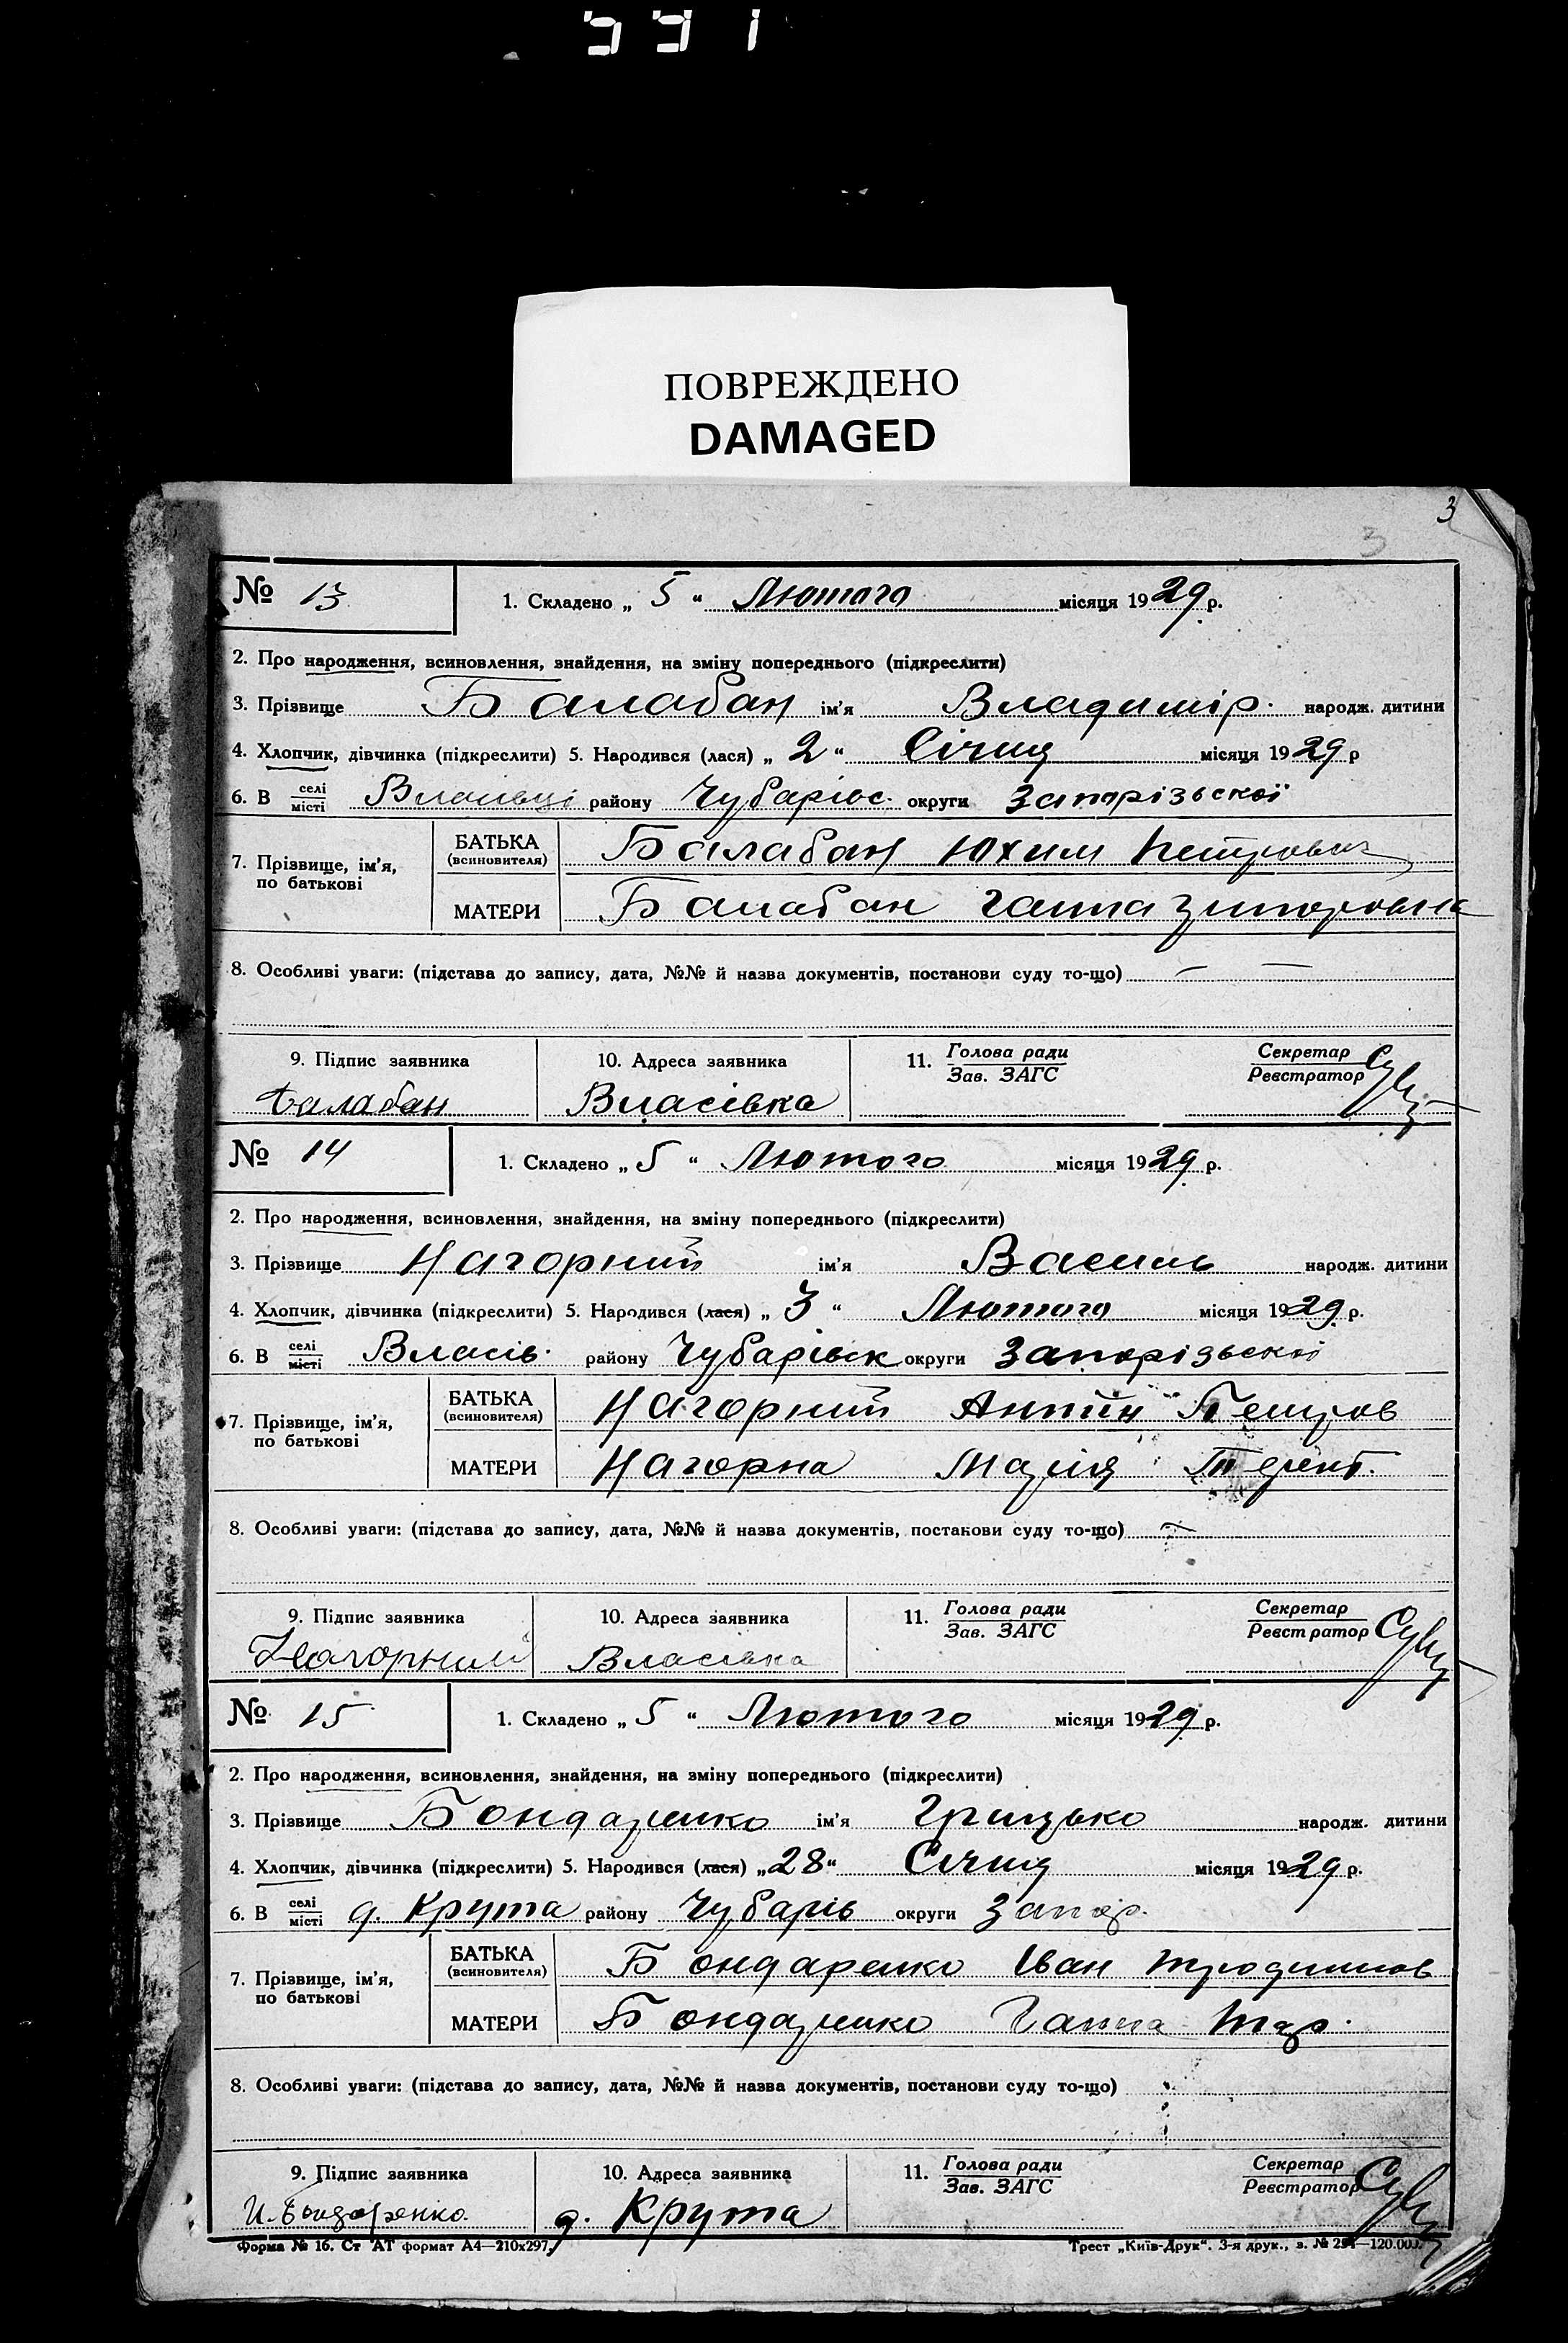 ПОВРЕЖДЕНО
DAMAGED
3
3
№ 13 1. Складено „ 5 “ Лютого місяця 1929 р.
2. Про народження, всиновлення, знайдення, на зміну попереднього (підкреслити)
3. Прізвище Балабан ім'я Владимір. народж. дитини
4. Хлопчик, дівчинка (підкреслити) 5. Народився (лася) „ 2 “ Січня місяця 1929 р
6. В селі/місті Власівці району Чубарівс. округи Запорізьскої
7. Прізвище, ім'я, по батькові БАТЬКА (всиновителя) Балабан Юхим Петрович
МАТЕРИ Балабан Ганна
8. Особливі уваги: (підстава до запису, дата, №№ й назва документів, постанови суду то-що) — —
9. Підпис заявника 10. Адреса заявника 11. Голова ради/Зав. ЗАГС Секретар/Реєстратор
Балабан Власівка
№ 14 1. Складено „ 5 “ Лютого місяця 1929 р.
2. Про народження, всиновлення, знайдення, на зміну попереднього (підкреслити)
3. Прізвище Нагорний ім'я Василь народж. дитини
4. Хлопчик, дівчинка (підкреслити) 5. Народився (лася) „ 3 “ Лютого місяця 1929 р.
6. В селі/місті Власів. району Чубарівск округи Запорізьскої
7. Прізвище, ім'я, по батькові БАТЬКА (всиновителя) Нагорний Антін Петров
МАТЕРИ Нагорна Марія Терент.
8. Особливі уваги: (підстава до запису, дата, №№ й назва документів, постанови суду то-що) —
9. Підпис заявника 10. Адреса заявника 11. Голова ради/Зав. ЗАГС Секретар/Реєстратор
Нагорний Власівка
№ 15 1. Складено „ 5 “ Лютого місяця 1929 р.
2. Про народження, всиновлення, знайдення, на зміну попереднього (підкреслити)
3. Прізвище Бондаренко ім'я Грицько народж. дитини
4. Хлопчик, дівчинка (підкреслити) 5. Народився (лася) „ 28 “ Січня місяця 1929 р.
6. В селі/місті д. Крута району Чубарів округи Запор.
7. Прізвище, ім'я, по батькові БАТЬКА (всиновителя) Бондаренко Іван
МАТЕРИ Бондаренко Ганна
8. Особливі уваги: (підстава до запису, дата, №№ й назва документів, постанови суду то-що)
9. Підпис заявника 10. Адреса заявника 11. Голова ради/Зав. ЗАГС Секретар/Реєстратор
И. Бондаренко. д. Крута
Форма № 16. Ст АТ формат А4—210х297. Трест „Київ-Друк“. 3-я друк., з. №